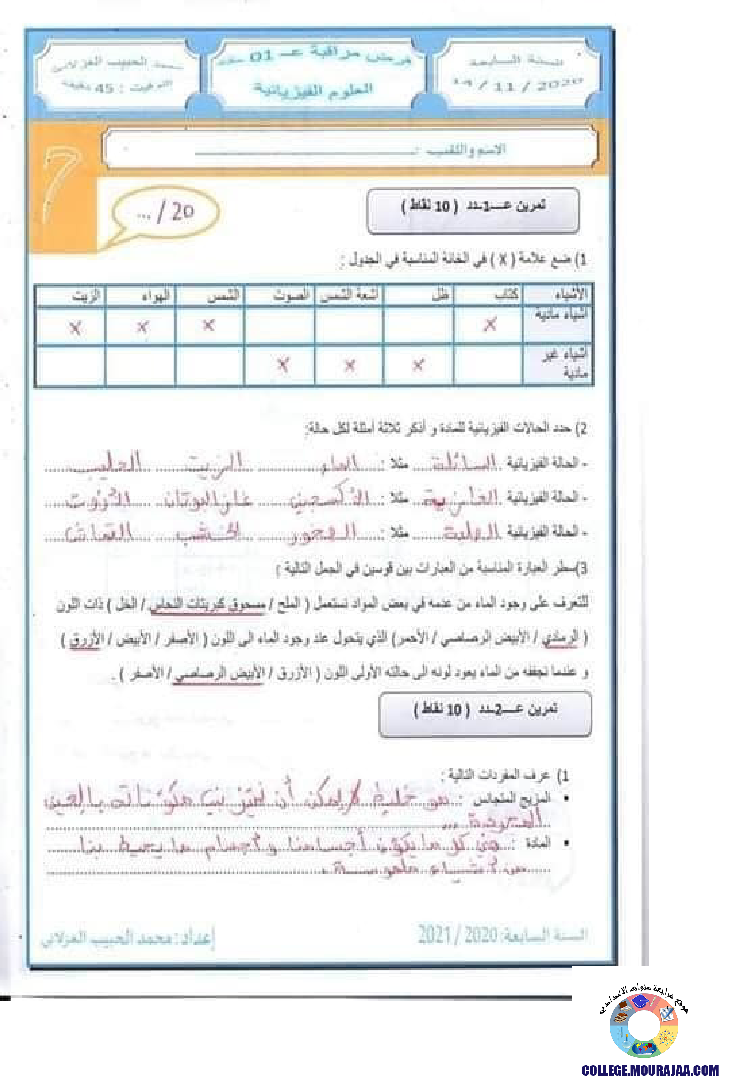 السنة السابعة
14 / 11 / 2020
فرض مراقبة عـ 01 ـدد
العلوم الفيزيائية
محمد الحبيب الغزلاني
التوقيت : 45 دقيقة
الاسم واللقب :
7
... / 20
تمرين عــ1ـدد ( 10 نقاط )
1) ضع علامة ( X ) في الخانة المناسبة في الجدول :
الأشياء كتاب ظل اشعة الشمس الصوت الشمس الهواء الزيت
اشياء مادية X X X X
اشياء غير مادية X X X
2) حدد الحالات الفيزيائية للمادة و أذكر ثلاثة أمثلة لكل حالة:
- الحالة الفيزيائية السائلة مثلا : الماء الزيت الحليب
- الحالة الفيزيائية الغازية مثلا : الأكسجين غاز البوتان الأزوت
- الحالة الفيزيائية الصلبة مثلا : الخشب القماش
3)سطر العبارة المناسبة من العبارات بين قوسين في الجمل التالية :
للتعرف على وجود الماء من عدمه في بعض المواد نستعمل ( الملح / مسحوق كبريتات النحاس / الخل ) ذات اللون
( الرمادي / الأبيض الرصاصي / الأحمر) الذي يتحول عند وجود الماء الى اللون ( الأصفر / الأبيض / الأزرق )
و عندما نجففه من الماء يعود لونه الى حالته الأولى اللون ( الأزرق / الأبيض الرصاصي / الأصفر ) .
تمرين عــ2ـدد ( 10 نقاط )
1) عرف المفردات التالية :
• المزيج المتجانس : هو خليط لا يمكن أن نميز بين مكوناته بالعين
المجردة ...
• المادة : هي كل ما يكون أجسامنا وأجسام ما يحيط بنا
من أشياء ملموسة .
السنة السابعة: 2020 / 2021
إعداد : محمد الحبيب الغزلاني
موقع مراجعة
COLLEGE.MOURAJAA.COM